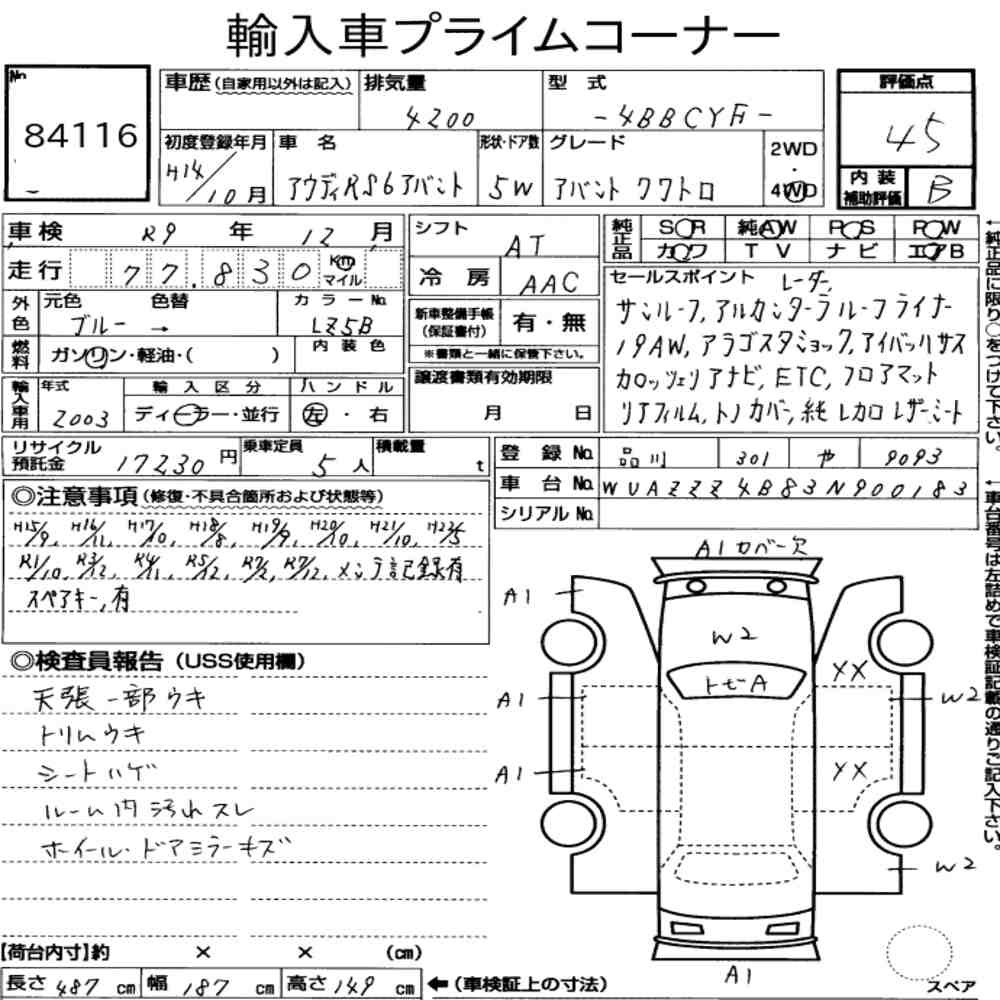 輸入車プライムコーナー
No. 84116
車歴(自家用以外は記入) 排気量 4200 型式 -4BBCYF- 評価点 45
初度登録年月 H14/10月 車名 アウディRS6アバント 形状・ドア数 5W グレード アバント クワトロ 2WD・4WD 内装補助評価 B
車検 R9年12月 シフト AT 純正品 SR 純AW PS PW
走行 77,830 Km マイル 冷房 AAC カワ TV ナビ エアB
外色 元色 ブルー → 色替 カラーNo. LZ5B 新車整備手帳(保証書付) 有・無
※書類と一緒に保管下さい。
燃料 ガソリン・軽油・( ) 内装色 譲渡書類有効期限 月 日
輸入車用 年式 2003 輸入区分 ディーラー・並行 ハンドル 左・右
セールスポイント レーダー,
サンルーフ,アルカンターラルーフライナー
19AW,アラゴスタショック,アイバッハサス
カロッツェリアナビ,ETC,フロアマット
リアフィルム,トノカバー,純レカロレザーシート
リサイクル預託金 17230円 乗車定員 5人 積載量 t
登録No. 品川 301 や 9093
車台No. WUAZZZ4B83N900183
シリアルNo.
◎注意事項(修復・不具合箇所および状態等)
H15/9, H16/11, H17/10, H18/8, H19/9, H20/10, H21/10, H23/5
R1/10, R3/12, R4/11, R5/12, R7/2, R7/12, メンテ記録有
スペアキー,有
◎検査員報告(USS使用欄)
天張一部ウキ
トリムウキ
シートハゲ
ルーム内汚れスレ
ホイール・ドアミラーキズ
A1カバー欠
A1
W2
トビA
XX
A1
W2
A1
YX
W2
A1
スペア
【荷台内寸】約 × × (cm)
長さ 487 cm 幅 187 cm 高さ 149 cm ←(車検証上の寸法)
←純正品に限り○をつけて下さい。
←車台番号は左詰めで車検証記載の通りご記入下さい。